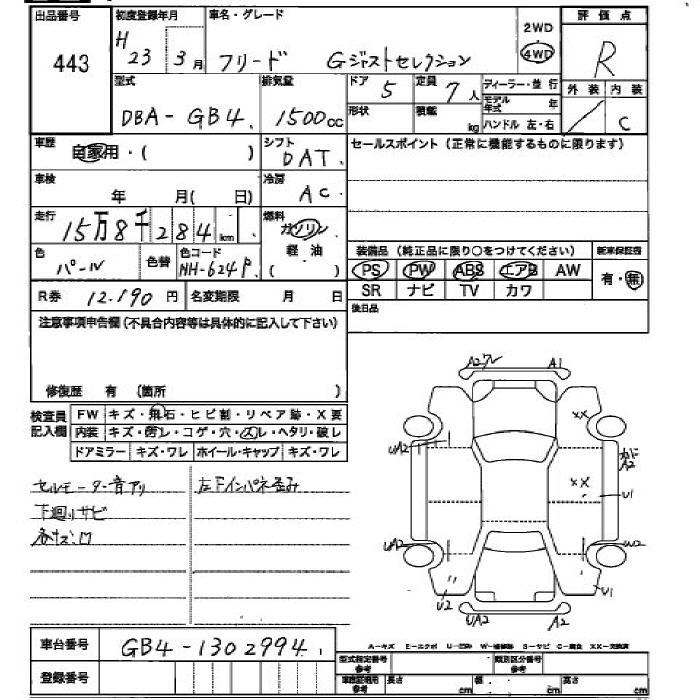 出品番号 初度登録年月 車名・グレード 2WD 評価点
443 H23 3月 フリード Gジャストセレクション 4WD R
型式 排気量 ドア 5 定員 7人 ディーラー・並行 外装 内装
DBA-GB4. 1500cc 形状 積載 kg モデル年式 年 C
ハンドル 左・右
車歴 自家用・( ) シフト DAT. セールスポイント (正常に機能するものに限ります)
車検 年 月( 日) 冷房 AC.
走行 15万8千284km 燃料 ガソリン 軽油
色 パール 色替 色コード NH-624P. 装備品 (純正品に限り○をつけてください) 新車保証書
PS PW ABS エアB AW 有・無
SR ナビ TV カワ
R券 12,190円 名変期限 月 日 後日品
注意事項申告欄(不具合内容等は具体的に記入して下さい)
修復歴 有 (箇所 )
検査員記入欄 FW キズ・飛石・ヒビ割・リペア跡・X要
内装 キズ・汚レ・コゲ・穴・スレ・ヘタリ・破レ
ドアミラー キズ・ワレ ホイール・キャップ キズ・ワレ
セルモーター音アリ 左下インパネ歪み
下廻りサビ
A2ワレ A1
XX
UA2 A2
XX
U1
UA2 W2
U2 U1
UA2 A2
車台番号 GB4-1302994
A-キズ E-エクボ U-凹み W-補修跡 S-サビ C-腐食 XX-交換済
登録番号 型式指定番号 参考 類別区分番号 参考
車庫証明用 参考 長さ cm 幅 cm 高さ cm